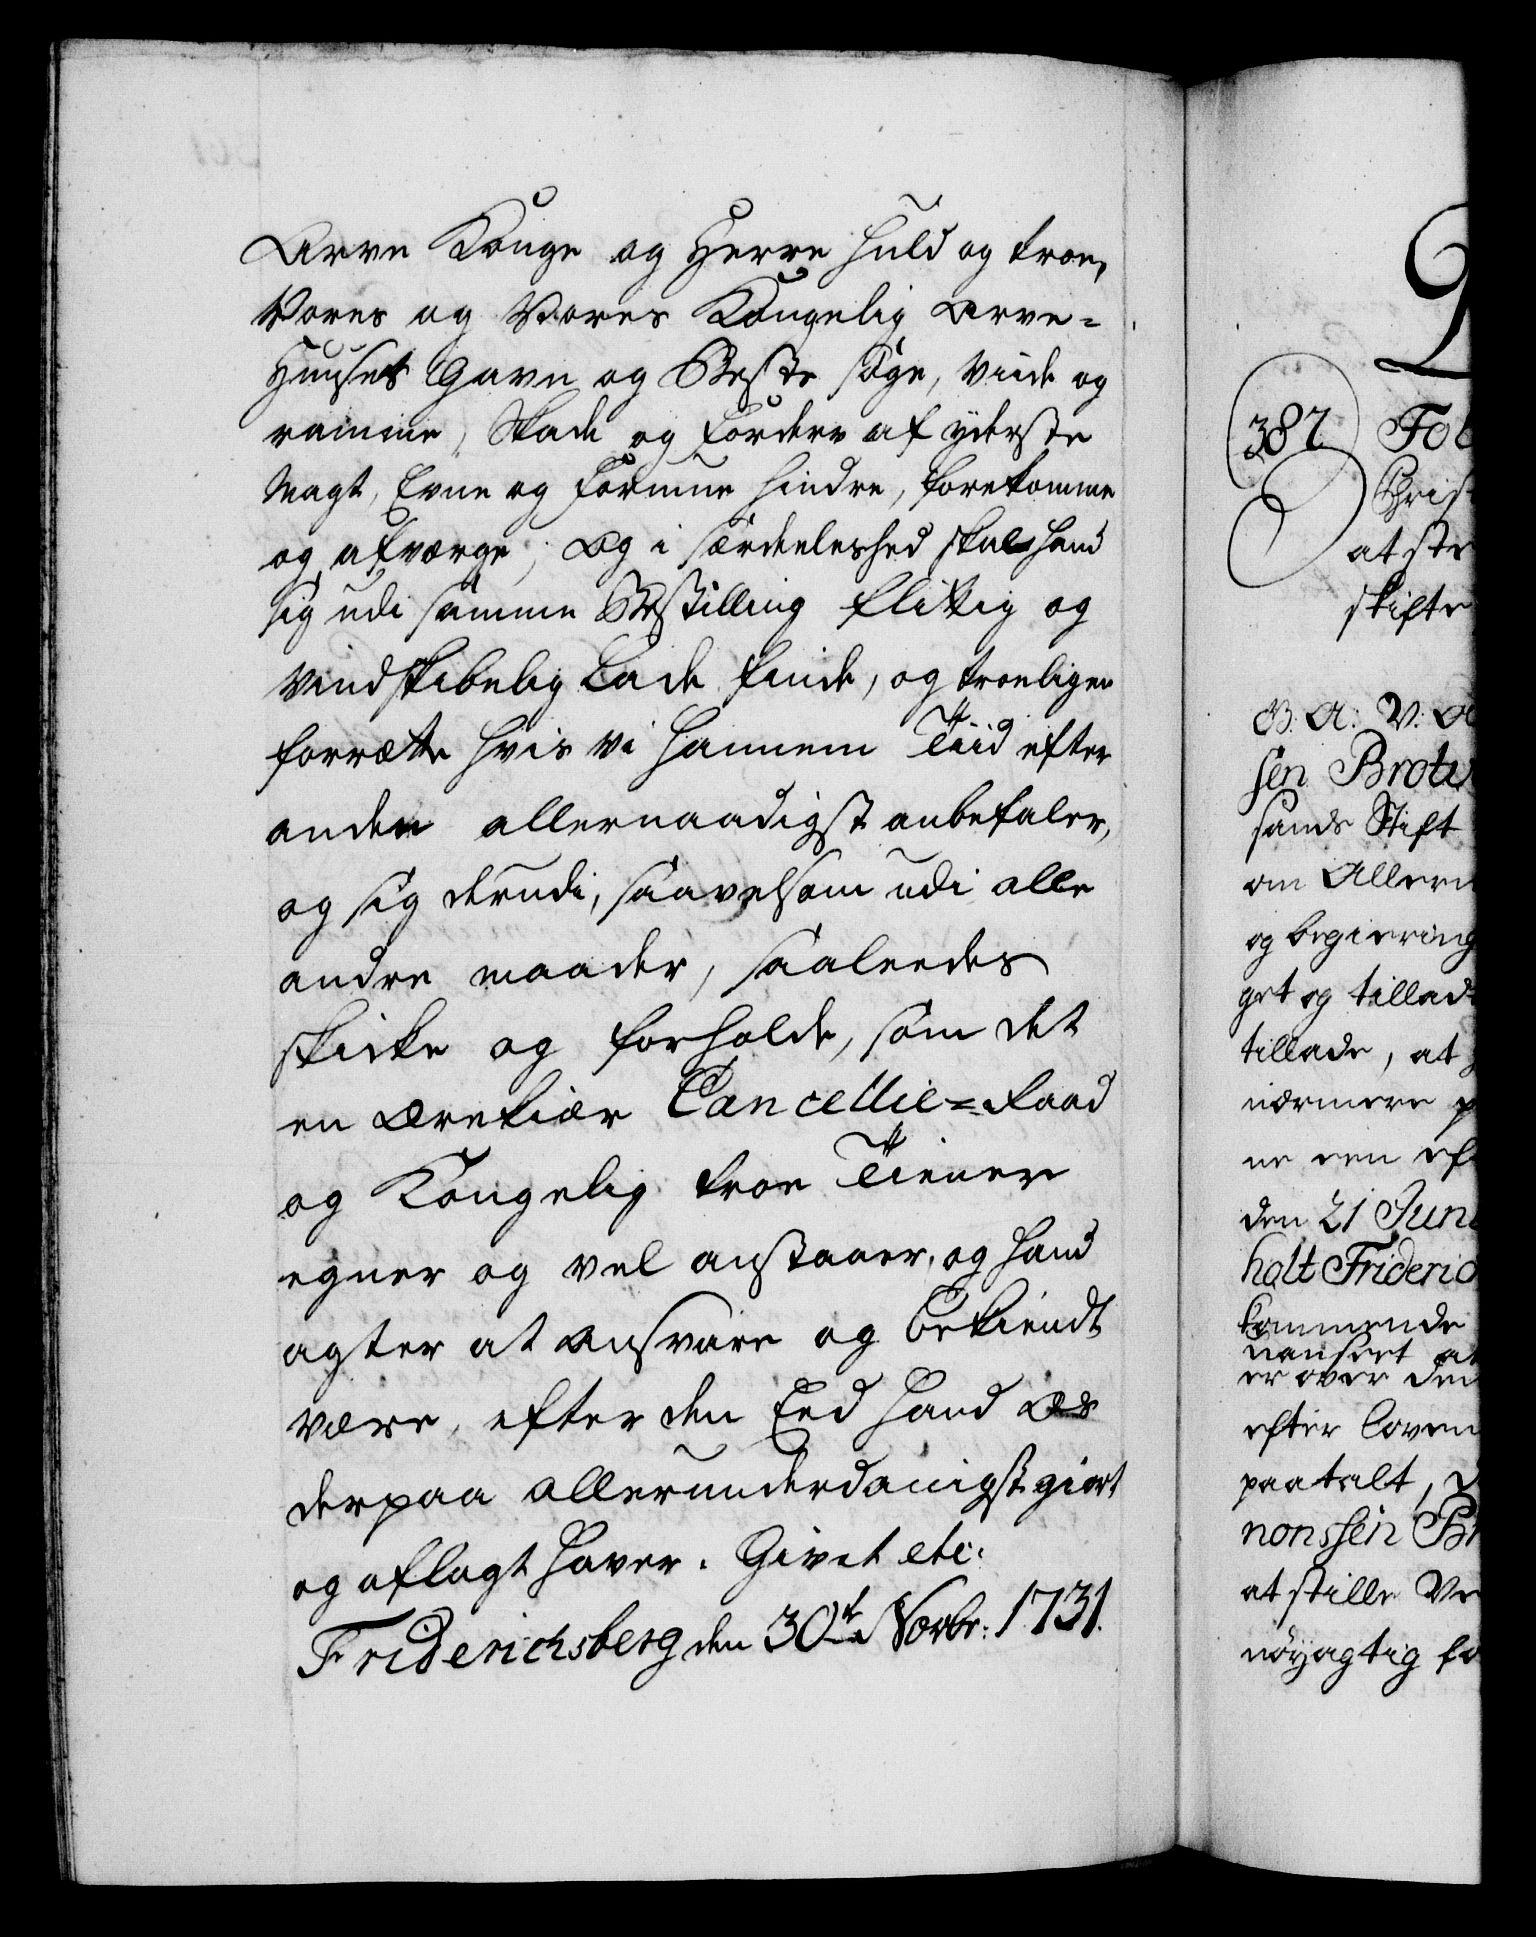 Arve Konge og Herre huld og troe,
Vores og Vores Kongelig Arve-
Huuses Gavn og Beste søge, viide og
ramme, Skade og Forderv af yderste
Magt, Evne og Formue hindre, forekomme
og afværge; Og i særdeeleshed skal hand
sig udi samme Bestilling flitig og
vindskibelig lade finde, og troeligen
forrætte hvis vi hannem Tiid efter
anden allernaadigst anbefaler,
og sig derudi, saavelsom udi alle
andre maader, saaleedes
skicke og forholde, som det
en ærekiær Cancellie-Raad
og Kongelig troe Tiener
egner og vel anstaaer, og hand
agter at ansvare og bekiendt
være, efter den Eed hand Os
derpaa allerunderdanigst giort
og aflagt haver. Givet etc:
Friderichsberg den 30te Novbr: 1731.
387
Fol
Christ
at ste
skifte
G: A: V: A
sen Brotw
sands Stift
om Allern
og begiering
get og tillad
tillade, at
nærmere p
ne een eft
den 21 Juni
holt Frideric
kommende
uanseet at
er over den
efter loven
paatalt,
nonssen Br
at stille Ve
nøyagtig fo